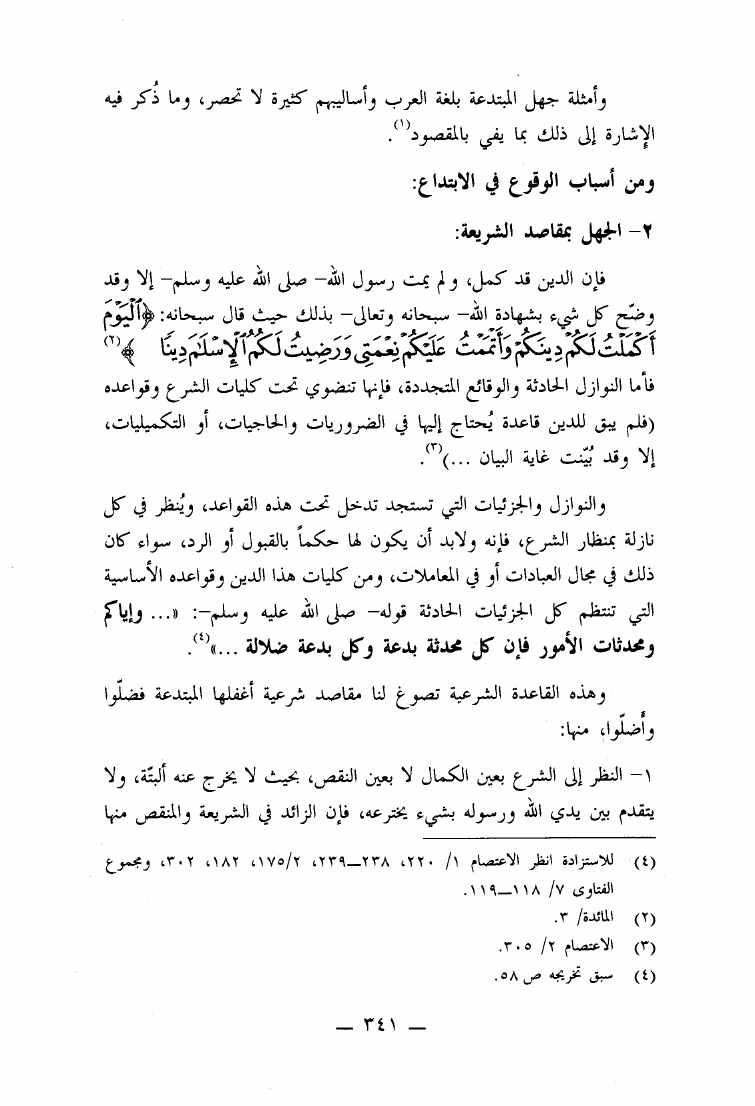 وأمثلة جهل المبتدعة بلغة العرب وأساليبهم كثيرة لا تحصر، وما ذُكر فيه
الإشارة إلى ذلك بما يفي بالمقصود(١).
ومن أسباب الوقوع في الابتداع:
٢- الجهل بمقاصد الشريعة:
فإن الدين قد كمل، ولم يمت رسول الله- صلى الله عليه وسلم- إلا وقد
وضّح كل شيء بشهادة الله- سبحانه وتعالى- بذلك حيث قال سبحانه: ﴿ٱلْيَوْمَ
أَكْمَلْتُ لَكُمْ دِينَكُمْ وَأَتْمَمْتُ عَلَيْكُمْ نِعْمَتِى وَرَضِيتُ لَكُمُ ٱلْإِسْلَٰمَ دِينًا ﴾(٢)
فأما النوازل الحادثة والوقائع المتجددة، فإنها تنضوي تحت كليات الشرع وقواعده
(فلم يبق للدين قاعدة يُحتاج إليها في الضروريات والحاجيات، أو التكميليات،
إلا وقد بُيّنت غاية البيان ...)(٣).
والنوازل والجزئيات التي تستجد تدخل تحت هذه القواعد، ويُنظر في كل
نازلة بمنظار الشرع، فإنه ولابد أن يكون لها حكماً بالقبول أو الرد، سواء كان
ذلك في مجال العبادات أو في المعاملات، ومن كليات هذا الدين وقواعده الأساسية
التي تنتظم كل الجزئيات الحادثة قوله- صلى الله عليه وسلم-: «... وإياكم
ومحدثات الأمور فإن كل محدثة بدعة وكل بدعة ضلالة ...»(٤).
وهذه القاعدة الشرعية تصوغ لنا مقاصد شرعية أغفلها المبتدعة فضلّوا
وأضلّوا، منها:
١- النظر إلى الشرع بعين الكمال لا بعين النقص، بحيث لا يخرج عنه ألبتّة، ولا
يتقدم بين يدي الله ورسوله بشيء يخترعه، فإن الزائد في الشريعة والمنقص منها
(٤) للاستزادة انظر الاعتصام ١/ ٢٢٠، ٢٣٨—٢٣٩، ١٧٥/٢، ١٨٢، ٣٠٢، ومجموع
الفتاوى ٧/ ١١٨—١١٩.
(٢) المائدة/ ٣.
(٣) الاعتصام ٢/ ٣٠٥.
(٤) سبق تخريجه ص ٥٨.
— ٣٤١ —